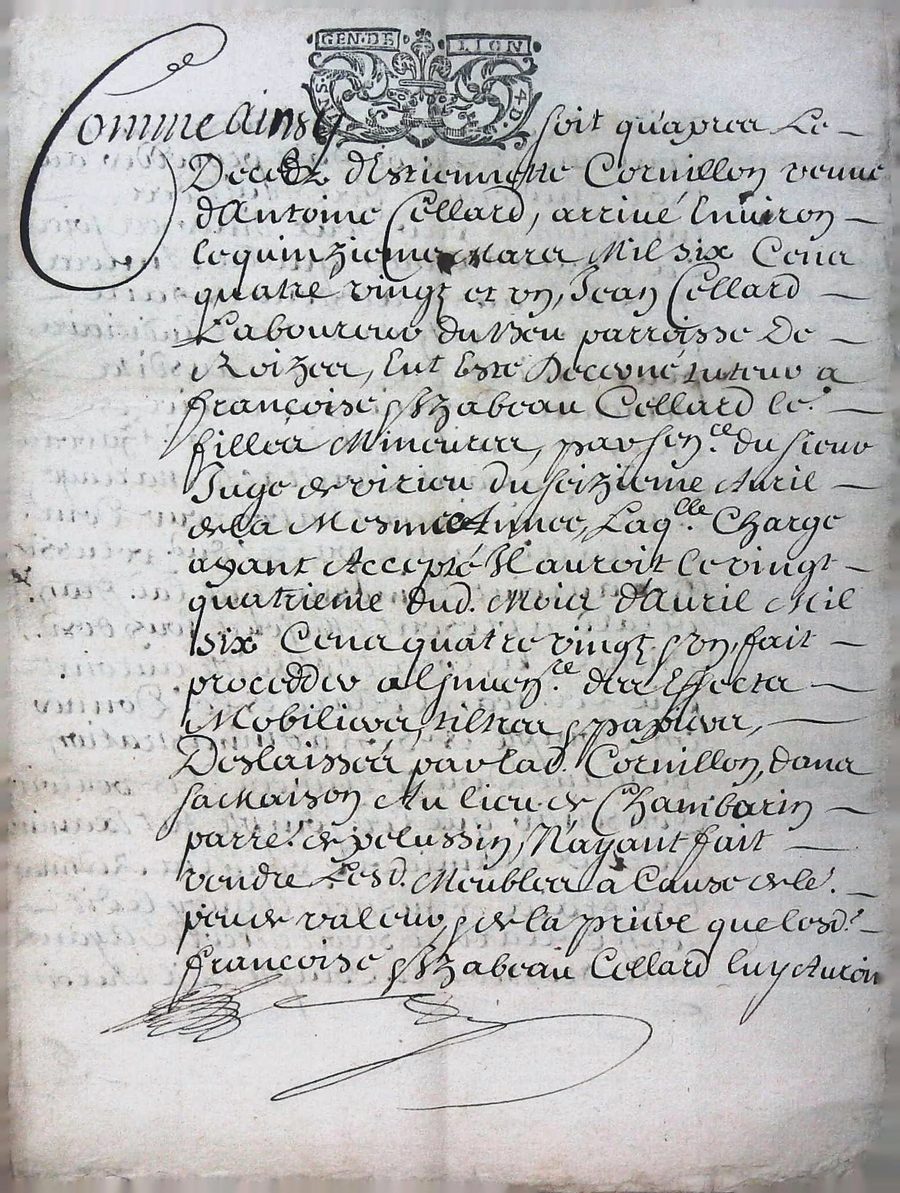 GEN. DE LION
Comme ainsy soit qu'apres Le
Decedz d'Estiennette Cornillon veuue
d'Antoine Cellard, arriué Enuiron
le quinzieme Mars Mil six Cens
quatre vingz et vn, Jean Cellard
Laboureur du Bou parroisse De
Roizey, Eut Esté Decerné tuteur a
françoise & Yzabeau Cellard les
filles Mineures, par sen.ce du sieur
Juge de virieu du seizieme Auril
de la Mesme Année, Laq.lle Charge
ayant Accepté Il auroit le vingt
quatrieme dud. Mois d'Auril Mil
six Cens quatre vingz & vn, fait
procedder a l'Jnuen.re des Effects
Mobiliers, tiltres & papiers,
Deslaissés par lad. Cornillon, dans
sa Maison Au lieu de Chambarin
parr.e de pelussin, N'ayant fait
vendre Lesd. Meubles a Cause de le.
peu de valeur, & de la priere que lesd.
françoise & Yzabeau Cellard luy Auroin